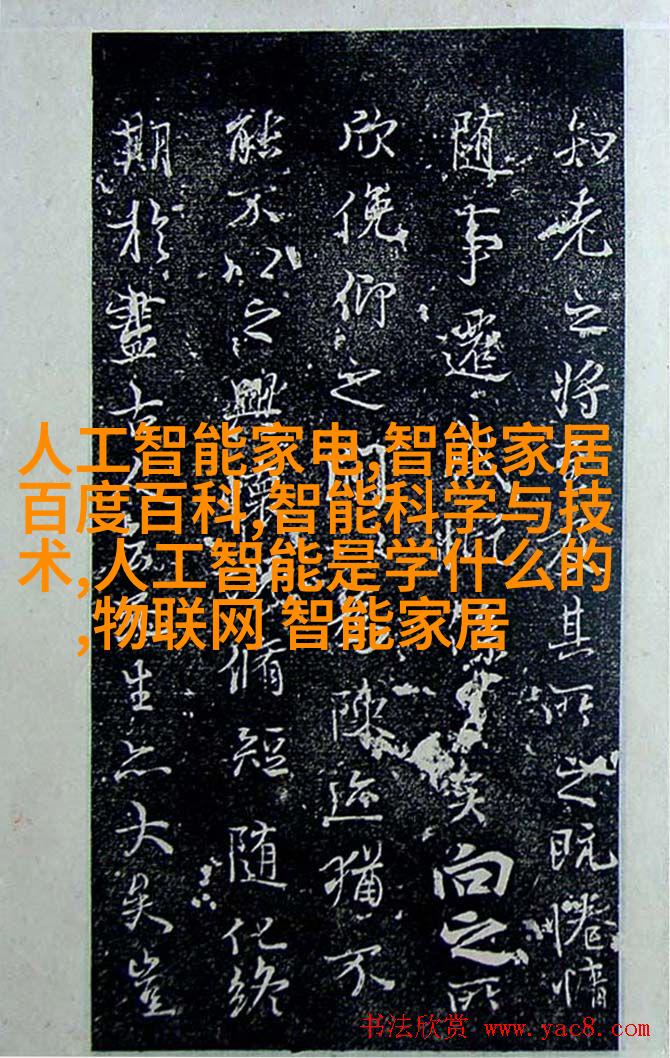 知老之將其所之既惓情
随事遷感矣向之所
欣俛仰之間陳迹猶不
能不以之興脩短随化終
期於盡古人生亦大矣豈
人工智能家电,智能家居
百度百科,智能科学与技
术,人工智能是学什么的
,物联网 智能家居
书法欣赏 www.yac8.com